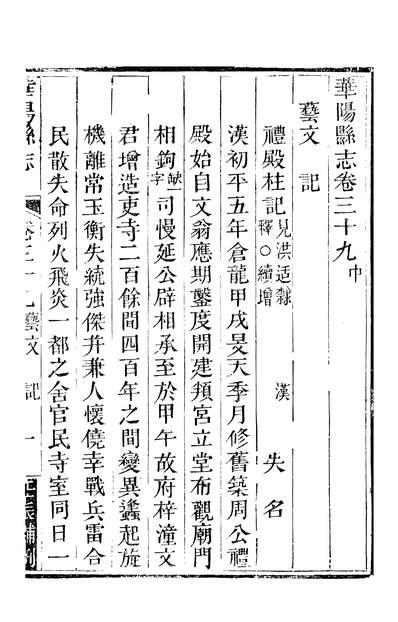 華陽縣志卷三十九中
藝文 記
禮殿柱記見洪适隸釋○續增 漢 失名
漢初平五年倉龍甲戌旻天季月修舊築周公禮
殿始自文翁應期鑿度開建頖宮立堂布觀廟門
相鉤缺一字司慢延公辟相承至於甲午故府梓潼文
君增造吏寺二百餘間四百年之間變異蠭起旋
機離常玉衡失統強傑并兼人懷僥幸戰兵雷合
民散失命列火飛炎一都之舍官民寺室同日一
華陽縣志
卷三十九藝文 記
一